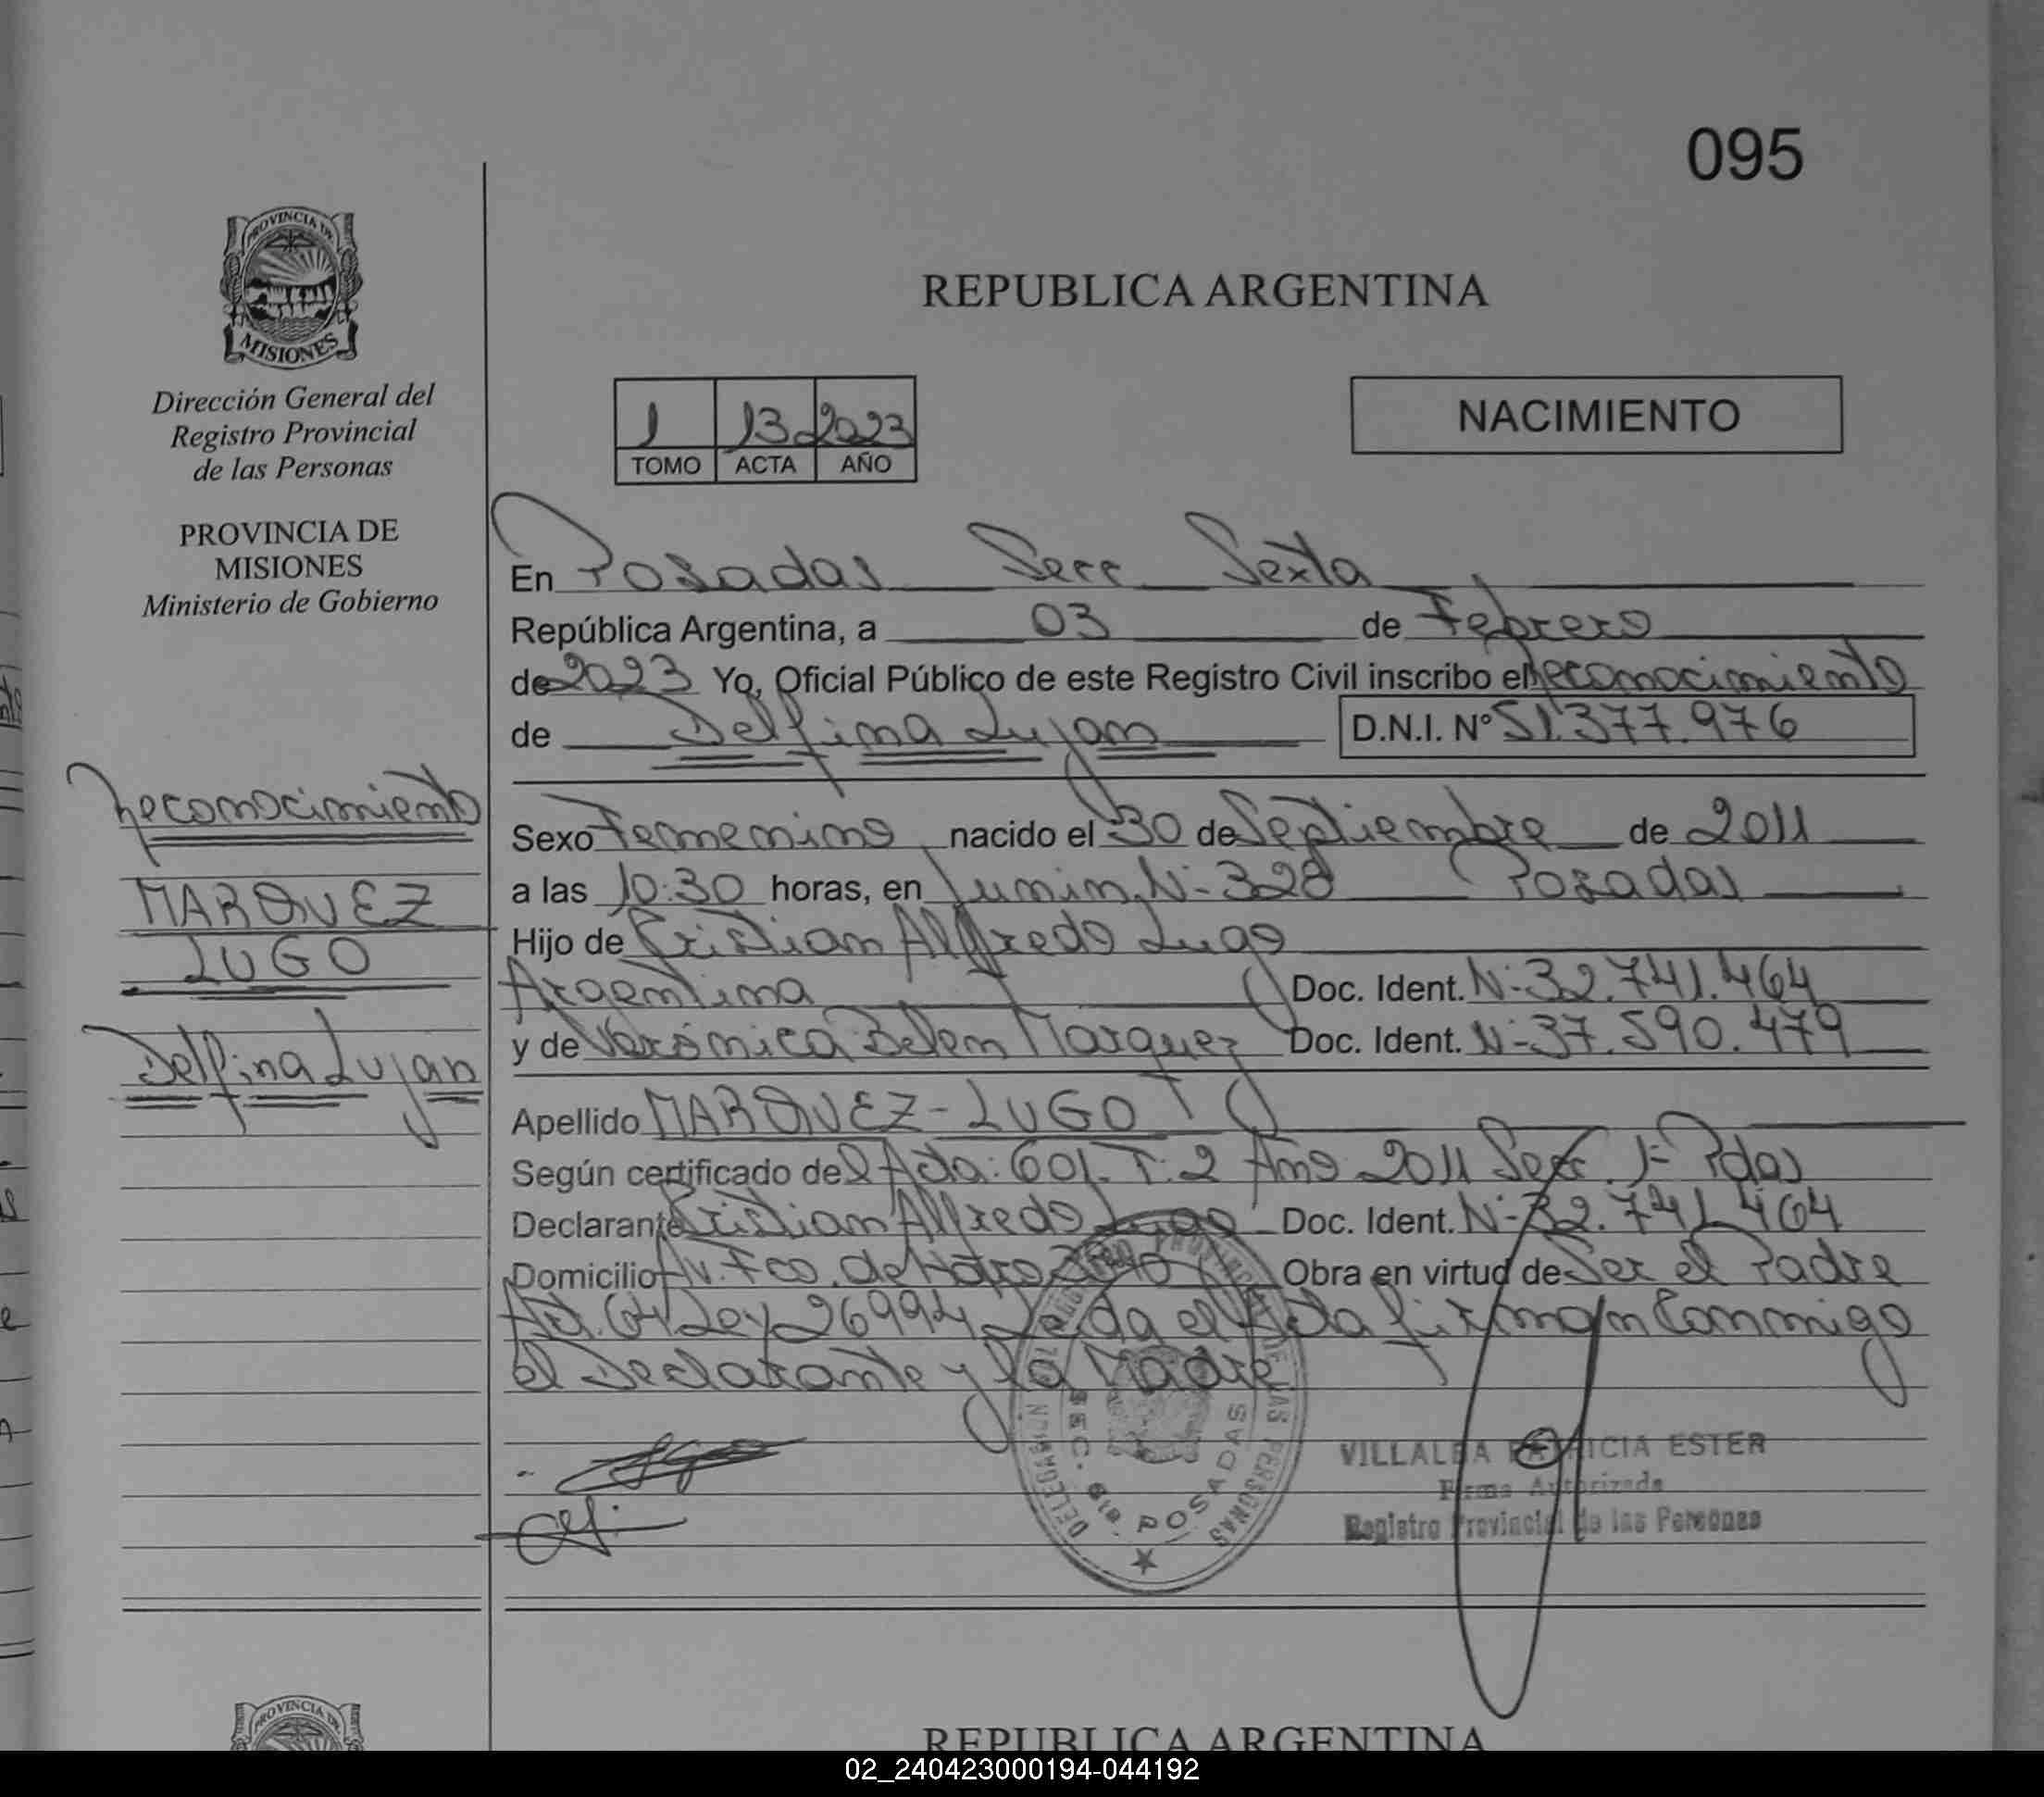 095
PROVINCIA DE
MISIONES
REPUBLICA ARGENTINA
Dirección General del
Registro Provincial
de las Personas
PROVINCIA DE
MISIONES
Ministerio de Gobierno
1 13 2023
TOMO ACTA AÑO
NACIMIENTO
En Posadas Secc Sexta
República Argentina, a 03 de Febrero
de 2023 Yo, Oficial Público de este Registro Civil inscribo el Reconocimiento
de Delfina Lujan D.N.I. Nº 51.377.976
Reconocimiento
MARQUEZ
LUGO
Delfina Lujan
Sexo Femenino nacido el 30 de Septiembre de 2011
a las 10:30 horas, en Junin N- 328 Posadas
Hijo de Cristian Alfredo Lugo
Argentina Doc. Ident. N- 32.741.464
y de Verónica Belen Marquez Doc. Ident. N- 37.590.479
Apellido MARQUEZ - LUGO
Según certificado del Acta: 601 T: 2 Año 2011 Secc 1= Pdas
Declarante Cristian Alfredo Lugo Doc. Ident. N- 32.741.464
Domicilio Av. Fco. de Haro Obra en virtud de Ser el Padre
Art. 64 Ley 26994 Leida el Acta firman Conmigo
el Declarante y la Madre
SEC. 6ta. POSADAS
VILLALBA PATRICIA ESTER
Firma Autorizada
Registro Provincial de las Personas
PROVINCIA DE
REPUBLICA ARGENTINA
02_240423000194-044192